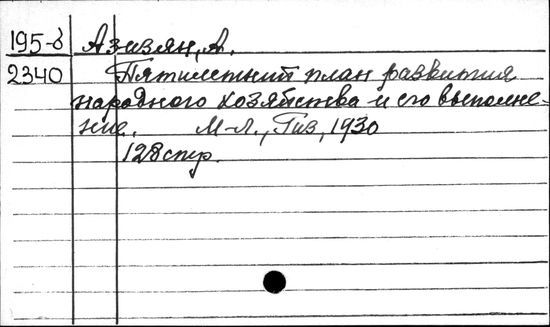 195-б Азизян, А.
2340 Пятилетний план развития
народного хозяйства и его выполне-
ние. М-Л., Гиз, 1930
128 стр.